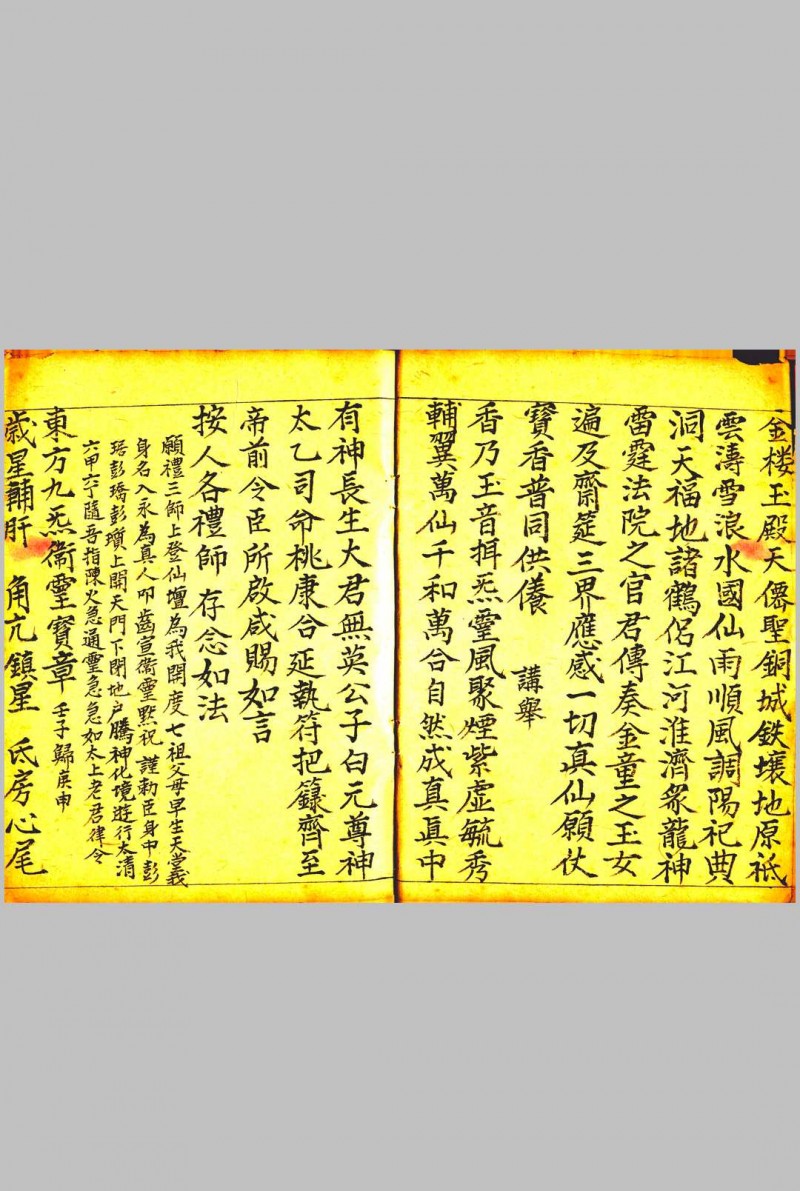 金楼玉殿天僊聖銅城鉄壤地原祗
雲濤雪浪水國仙雨順風調陽祀典
洞天福地諸鶴侶江河淮濟衆龍神
雷霆法院之官君傳奏金童之玉女
遍及齋筵三界應感一切真仙願仗
寳香普同供養 講舉
香乃玉音揖炁靈風聚煙紫虛毓秀
輔翼萬仙千和萬合自然成真真中
有神長生大君無英公子白元尊神
太乙司命桃康合延執符把籙齊至
帝前令臣所啟咸賜如言
按人各禮師 存念如法
願禮三師上登仙壇為我開度七祖父母早生天堂義
身名入永為真人叩齒宣衞靈黙祝 謹勅臣身中彭
琚彭璚彭瓆上開天門下閉地户騰神化境遊行太清
六甲六丁隨吾指陳火急通靈急急如太上老君律令
東方九炁衞靈寳章 壬子歸庚申
歲星輔肝 角亢鎮星 氐房心尾